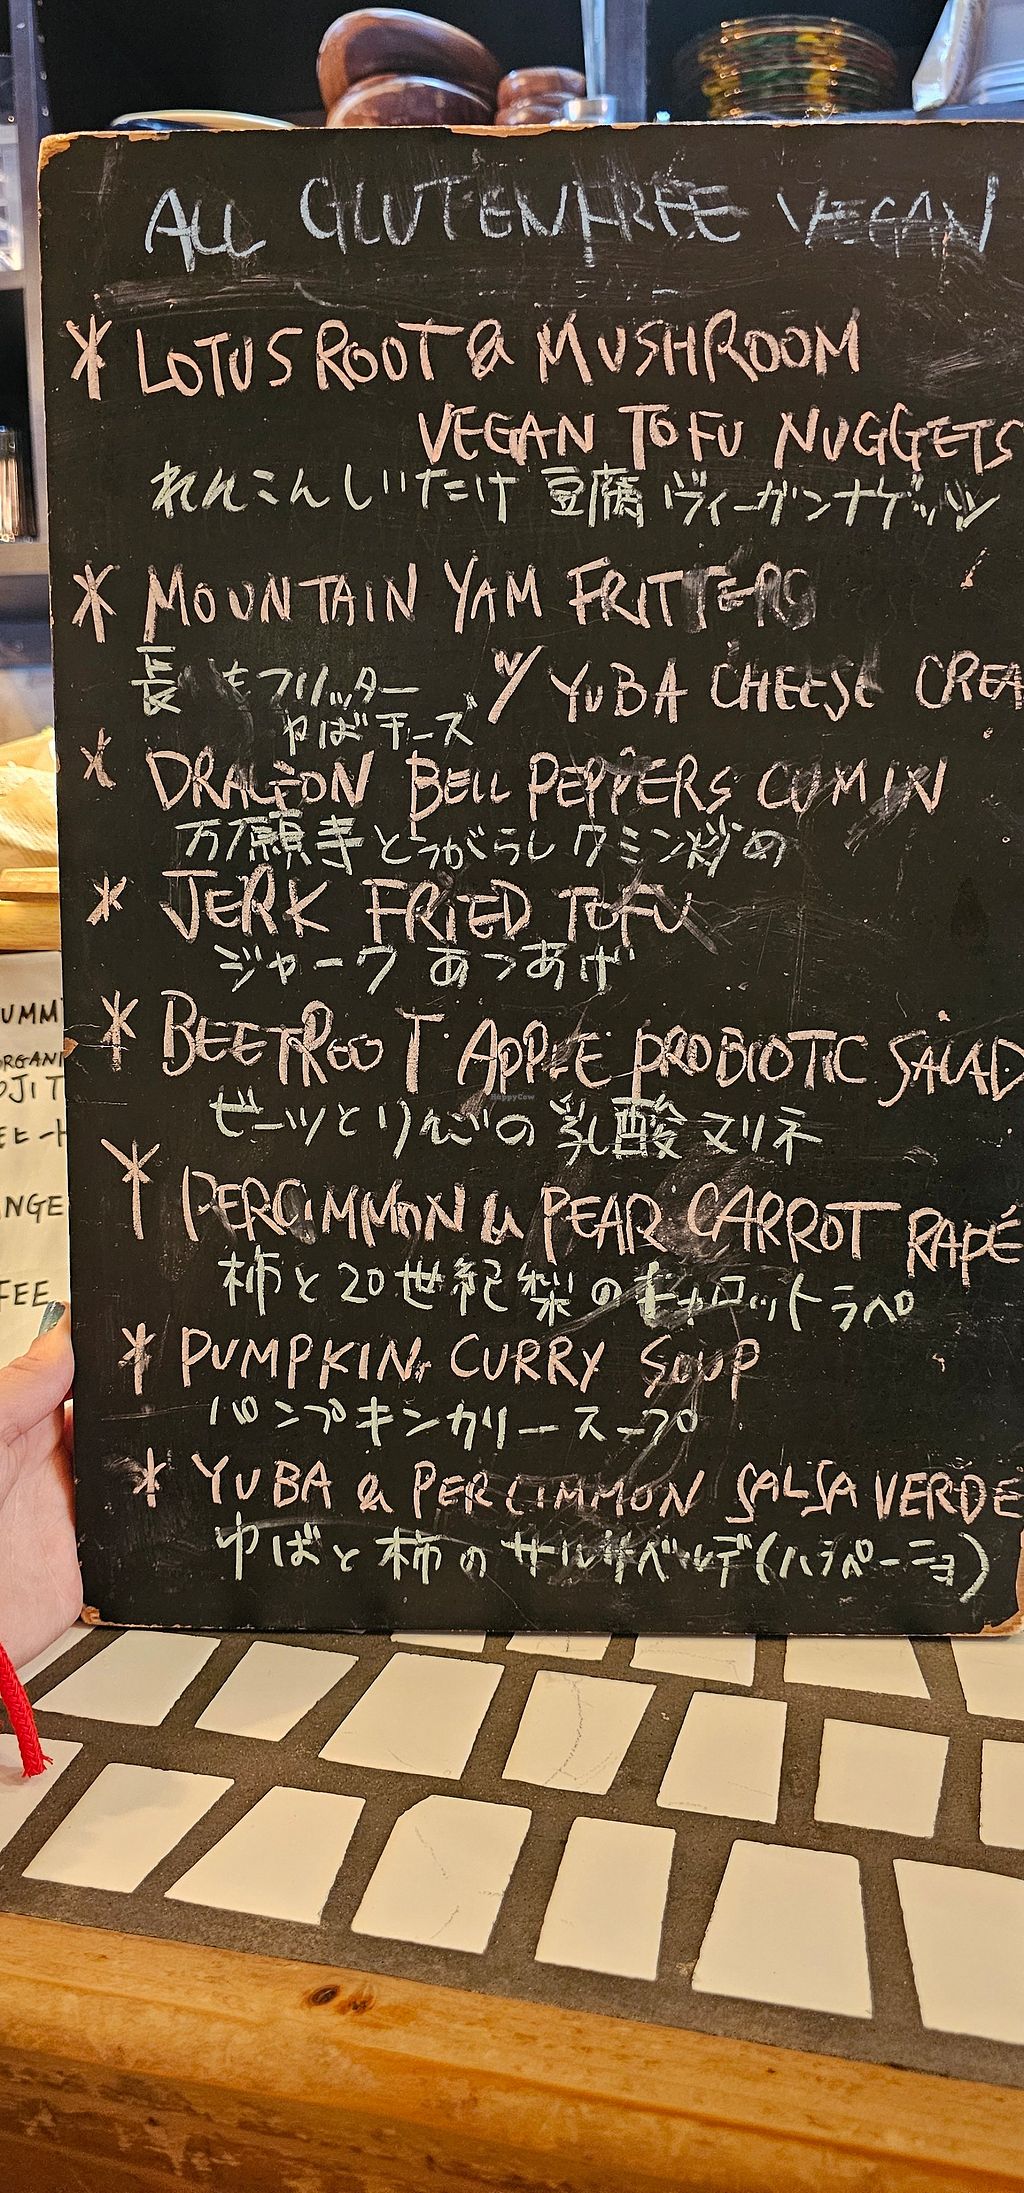 ALL GLUTENFREE VEGAN
* LOTUS ROOT & MUSHROOM
VEGAN TOFU NUGGETS
れんこんしいたけ 豆腐 ヴィーガンナゲッツ
* MOUNTAIN YAM FRITTERS
W/ YUBA CHEESE CREA
長 もフリッター
ゆばチーズ
* DRAGON BELL PEPPERS CUMIN
万願寺とうがらしクミン炒め
* JERK FRIED TOFU
ジャーク あつあげ
* BEETROOT APPLE PROBIOTIC SALAD
ビーツとりんごの乳酸マリネ
* PERCIMMON & PEAR CARROT RAPÉ
柿と20世紀梨のキャロットラペ
* PUMPKIN CURRY SOUP
パンプキンカリースープ
* YUBA & PERCIMMON SALSA VERDE
ゆばと柿のサルサベルデ(ハラペーニョ)
UMM
ORGANI
OJI T
ヒート
NGE
FEE
HappyCow